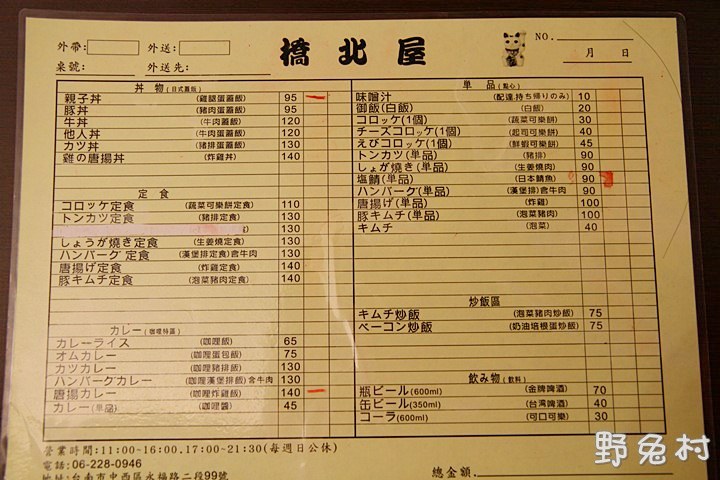 外帶: 外送:
橋北屋
NO.
桌號: 外送先:
月 日
丼 物(日式蓋飯)
親子丼 (雞腿蛋蓋飯) 95
豚丼 (豬肉蛋蓋飯) 95
牛丼 (牛肉蓋飯) 120
他人丼 (牛肉蛋蓋飯) 130
カツ丼 (豬排蛋蓋飯) 130
雞の唐揚丼 (炸雞丼) 140
定 食
コロッケ定食 (蔬菜可樂餅定食) 110
トンカツ定食 (豬排定食) 130
130
しょうが焼き定食 (生姜燒定食) 130
ハンバーグ定食 (漢堡排定食)含牛肉 130
唐揚げ定食 (炸雞定食) 140
豚キムチ定食 (泡菜豬肉定食) 140
カレー(咖哩特區)
カレーライス (咖哩飯) 65
オムカレー (咖哩蛋包飯) 75
カツカレー (咖哩豬排飯) 130
ハンバーグカレー (咖哩漢堡排飯)含牛肉 130
唐揚カレー (咖哩炸雞飯) 140
カレー(単品) (咖哩醬) 45
単 品(點心)
味噌汁 (配達、持ち帰りのみ) 10
御飯(白飯) (白飯) 20
コロッケ(1個) (蔬菜可樂餅) 30
チーズコロッケ(1個) (起司可樂餅) 40
えびコロッケ(1個) (鮮蝦可樂餅) 45
トンカツ(単品) (豬排) 90
しょが焼き(単品) (生姜燒肉) 90
塩鯖(単品) (日本鯖魚) 90
ハンバーグ(単品) (漢堡排)含牛肉 90
唐揚げ(単品) (炸雞) 100
豚キムチ(単品) (泡菜豬肉) 100
キムチ (泡菜) 40
炒飯區
キムチ炒飯 (泡菜豬肉炒飯) 75
ベーコン炒飯 (奶油培根蛋炒飯) 75
飲み物(飲料)
瓶ビール(600ml) (金牌啤酒) 70
缶ビール(350ml) (台湾啤酒) 40
コーラ(600ml) (可口可樂) 30
營業時間:11:00~16:00.17:00~21:30(每週日公休)
電話:06-228-0946
地址:台南市中西區永福路二段99號
總金額.
野兔村